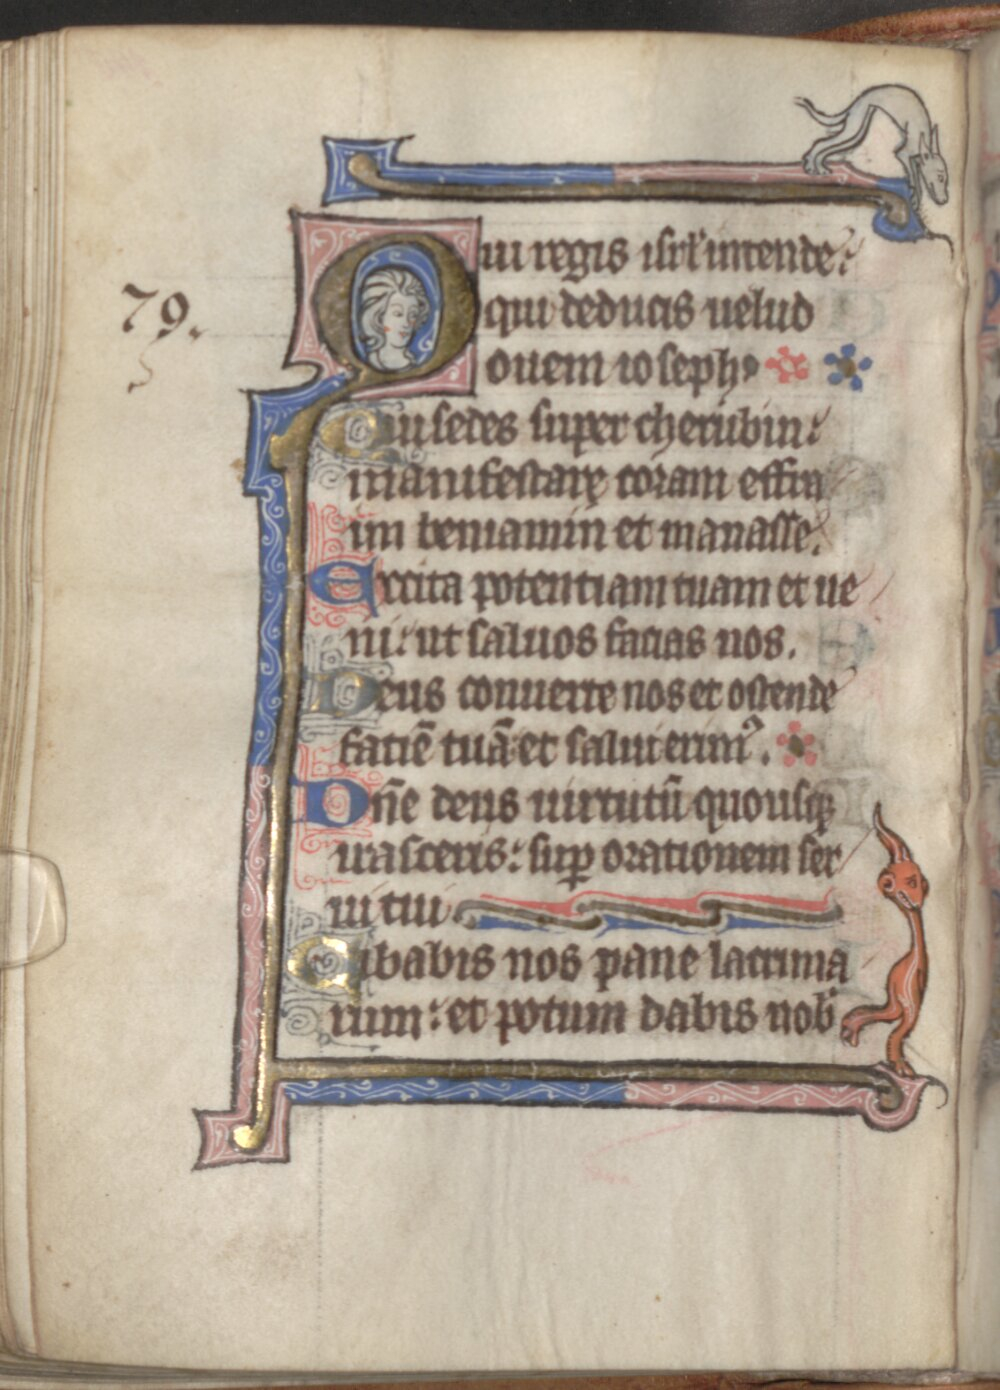 79.
Qui regis isrl' intende:
qui deducis uelud
ouem ioseph.
Qui sedes super cherubin:
manifestare coram effra
im beniamin et manasse.
Excita potentiam tuam et ue
ni: ut saluos facias nos.
Deus conuerte nos et ostende
faciē tuā et salui erimꝰ.
Dñe deus uirtutū quousqꝫ
irasceris: suꝑ orationem ser
ui tui
Cibabis nos pane lacrima
rum: et potum dabis nob'